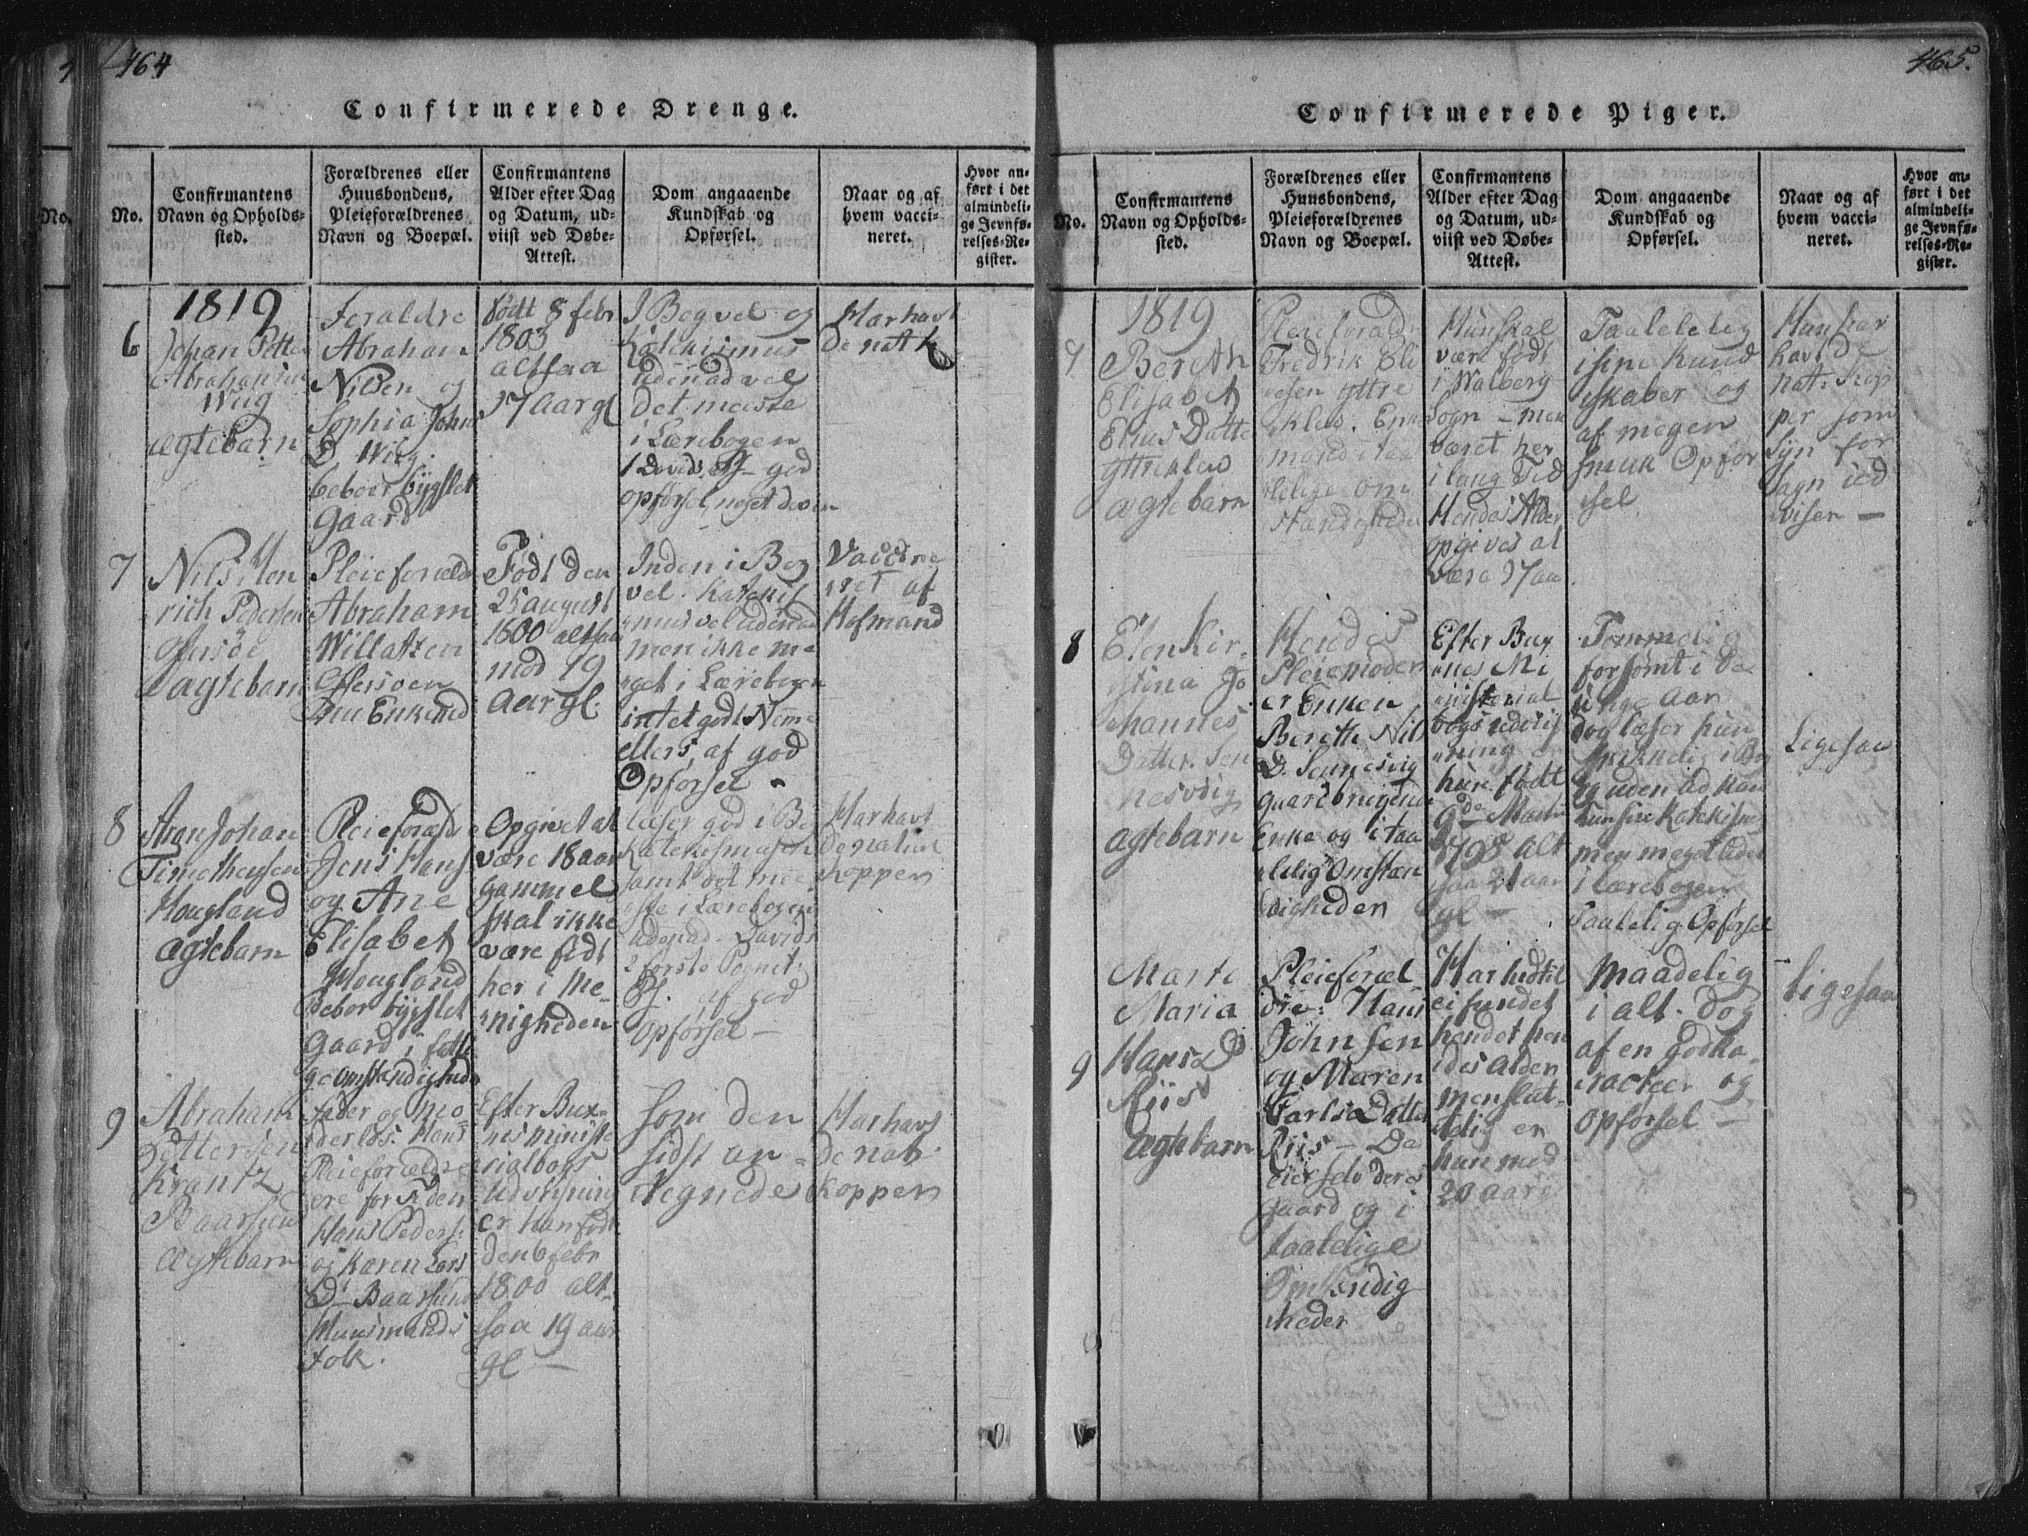 464
Confirmerede Drenge.
No.
Confirmantens Navn og Opholdssted.
Forældrenes eller Huusbondens, Pleieforældrenes Navn og Boepæl.
Confirmantens Alder efter Dag og Datum, udviist ved Døbe-Attest.
Dom angaaende Kundskab og Opførsel.
Naar og af hvem vaccineret.
Hvor anført i det almindelige Jevnførelses-Register.
1819
6
Johan Petter
Abrahamsen
Wiig
ægtebarn
Foraldre
Abraham
Nilsen og
Sophia Johns
D Wiig
beboer bygslet
Gaard
født 8 febr
1803
altsaa
17 aar gl
I Bog vel og
Katekismus
udenad vel
det meiste
i Lærebogen
god
opførsel noget doven
Har havt
de nat K
7
Nils Hen
rich Pedersen
ægtebarn
Pleieforæld
Abraham
Willatzen
Født den
25 august
1800 altsaa
mod 19
aar gl.
Inden i Bog
vel. Katekis
mus vel udenad
men ikke me
get i Lærebogen
intet godt Nemme
ellers af god
Opførsel
Vaccine
ret af
Hofmand
8
Aron Johan
Timotheusen
Hougland
ægtebarn
Pleieforældre
Jens Hans
og Ane
Elisabet
Hougland
Bebor bygslet
Gaard i fatti
ge omstændigheder
Opgivet at
være 18 aar
gammel
skal ikke
være født
her i Me-
nigheden
læser god i Bog
Katekismusen
samt det mee
ste i Lærebogen
udenad. Davids
2 første Poenit:
Ps. af god
Opførsel -
Har havt
de naturl
Kopper
9
Abraham
Pettersen
Krantz
Baarsund
ægtebarn
Fader og Mo
derløs. Hans
Pleieforældre
ere for Tiden
Hans Peders:
og Karen Lars
D. Baarsund
Huusmands
folk.
Efter Bux-
nes ministe
rialbogs
Udvisning
er han født
den 6 febr
1800 alt-
saa 19 aar
gl -
Som den
sidst an-
tegnede
Har havt
de nat:
Kopper
465.
Confirmerede Piger.
No.
Confirmantens Navn og Opholdssted.
Forældrenes eller Huusbondens, Pleieforældrenes Navn og Boepæl.
Confirmantens Alder efter Dag og Datum, udviist ved Døbe-Attest.
Dom angaaende Kundskab og Opførsel.
Naar og af hvem vaccineret.
Hvor anført i det almindelige Jevnførelses-Register.
1819
7
Bereth
Elisabet
Elias Datte
Yttreklev
ægtebarn
Pleieforæld
Fredrik Eli
esen Yttre
klev. Enke
mand i taa
lelige om
stændigheder
Hun skal
være født
i Walberg
Sogn - men
været her
i lang Tid
Hendes Alder
opgives at
være 17 aar
Taalelelig
i sine Kund
skaber og
af megen
smuk Opfør
sel
Hun har
havt de
nat: Kop
per som
Syn for
Sagn ud
viser -
8
Elen Kir
stina Jo
hannes
Datter. Sen
nesvig
ægtebarn
Hendes
Pleiemoder
er Enken
Berethe Nils
D. Sennesvig
gaardbrugende
Enke og i taa
lelig Omstæn
digheder
Efter Bux
nes Mi
nisterial
bogs udvis
ning er
hun født
9de Martii
1798 alt
saa 21 aar
gl -
Temmelig
forsømt i de
unge aar
dog læser hun
i Bog
og uden ad kan
hun sin Katekismus
men meget lidet
i Lærebogen
Taalelig Opførsel
Ligesaa
9
Marte
Maria
Hans D
Riis
ægtebarn
Pleieforæl
dre: Hans
Johnsen
og Maren
Carls Datter
Riis - De
eier selv deres
gaard og i
taalelige
Omstændig
heder
Har indtil
ei fundet
hendes
Alder
men slut-
telig er
hun mod
20 aar
Maadelig
i alt. dog
af en god Ka-
racteer og
opførsel -
Ligesaa